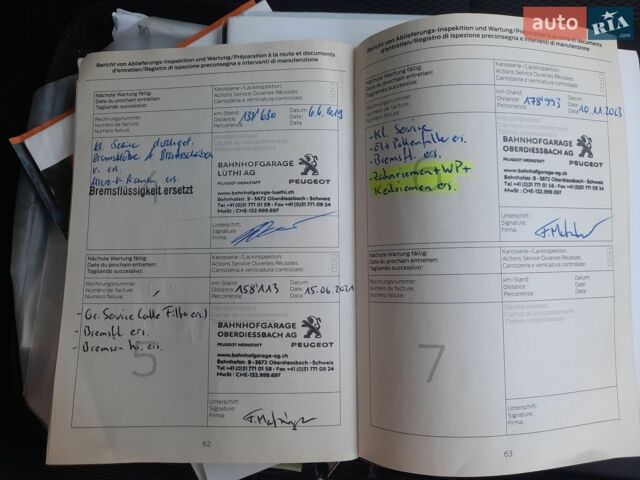 auto RIA.com
Bericht von Ablieferungs-Inspektion und Wartung/Préparation à la route et documents
d'entretien/Registro di ispezione preconsegna e interventi di manutenzione
Nächste Wartung fällig:
Date du prochain entretien:
Tagliando successivo:
Karosserie-/Lackinspektion:
Actions Service Ouvertes Réussies
Carrozzeria e verniciature controllate:
Rechnungsnummer:
Numéro de facture:
Numero fattura:
km-Stand:
Distance:
Percorrenza:
Datum:
Date:
Data:
6.6.2019
Kl. Service
Bremsflüssigkeit ersetzt
BAHNHOFGARAGE
LÜTHI AG
PEUGEOT WERKSTATT
PEUGEOT
www.bahnhofgarage-luethi.ch
Bahnhofstr. 9 - 3672 Oberdiessbach - Schweiz
Tel +41 (0)31 771 01 58 - Fax +41 (0)31 771 09 24
MwSt : CHE-132.999.697
Unterschrift:
Signature:
Firma:
Nächste Wartung fällig:
Date du prochain entretien:
Tagliando successivo:
Karosserie-/Lackinspektion:
Actions Service Ouvertes Réussies
Carrozzeria e verniciature controllate:
Rechnungsnummer:
Numéro de facture:
Numero fattura:
km-Stand:
Distance:
Percorrenza:
158'113
Datum:
Date:
Data:
15.06.2021
- Gr. Service (alle Filter ers.)
- Bremsfl. ers.
- Bremsen hi. ers.
5
BAHNHOFGARAGE
OBERDIESSBACH AG
PEUGEOT WERKSTATT
PEUGEOT
www.bahnhofgarage-og.ch
Bahnhofstr. 9 - 3672 Oberdiessbach - Schweiz
Tel +41 (0)31 771 01 58 - Fax +41 (0)31 771 09 24
MwSt : CHE-132.999.697
Unterschrift:
Signature:
Firma:
62
Bericht von Ablieferungs-Inspektion und Wartung/Préparation à la route et documents
d'entretien/Registro di ispezione preconsegna e interventi di manutenzione
Nächste Wartung fällig:
Date du prochain entretien:
Tagliando successivo:
Karosserie-/Lackinspektion:
Actions Service Ouvertes Réussies
Carrozzeria e verniciature controllate:
Rechnungsnummer:
Numéro de facture:
Numero fattura:
km-Stand:
Distance:
Percorrenza:
178'993
Datum:
Date:
Data:
10.11.2023
- Kl. Service
- Bremsfl. ers.
- Zahnriemen + WP +
Keilriemen ers.
BAHNHOFGARAGE
OBERDIESSBACH AG
PEUGEOT WERKSTATT
PEUGEOT
www.bahnhofgarage-og.ch
Bahnhofstr. 9 - 3672 Oberdiessbach - Schweiz
Tel +41 (0)31 771 01 58 - Fax +41 (0)31 771 09 24
MwSt : CHE-132.999.697
Unterschrift:
Signature:
Firma:
Nächste Wartung fällig:
Date du prochain entretien:
Tagliando successivo:
Karosserie-/Lackinspektion:
Actions Service Ouvertes Réussies
Carrozzeria e verniciature controllate:
Rechnungsnummer:
Numéro de facture:
Numero fattura:
km-Stand:
Distance:
Percorrenza:
Datum:
Date:
Data:
7
Unterschrift:
Signature:
Firma:
63